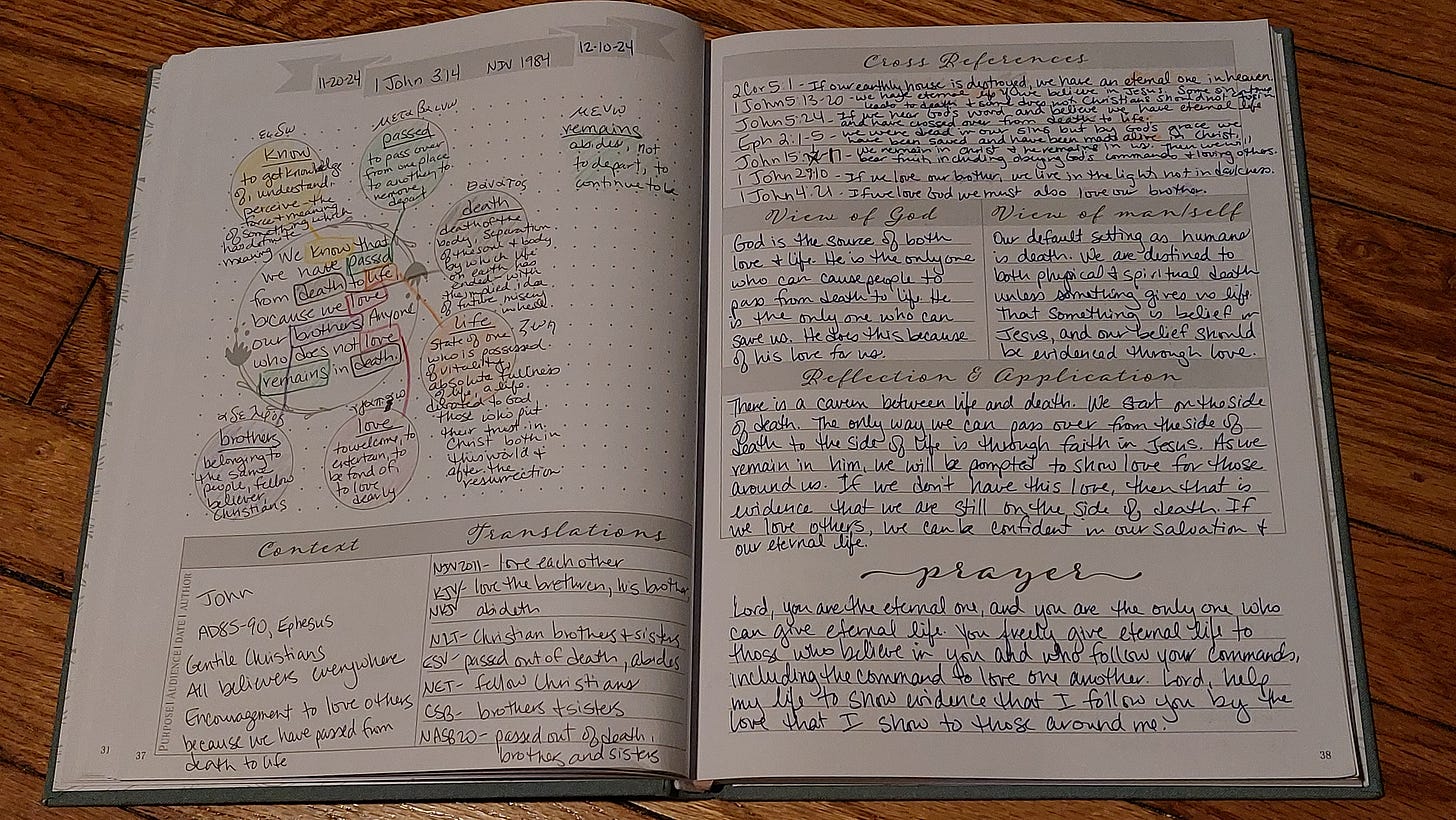 11-20-24
1 John 3:14 NIV 1984
12-10-24
ειδω
Know
to get knowledge
of, understand,
perceive - the
meaning
of something which
has definite
meaning
μεταβαινω
passed
to pass over
from one place
to another, to
remove,
depart
μενω
remains
abides, not
to depart, to
continue to be
θανατος
death
death of the
body, separation
of the soul & body
by which life
on earth has
ended - with
the implied idea
of future misery
in hell
We know that
we have passed
from death to life
because we love
our brothers. Anyone
who does not love
remains in death.
life ζωη
State of one
who is possessed
of vitality,
absolute fullness
of life, a life
devoted to God
those who put
their trust in
Christ both in
this world &
after the
resurrection
αδελφος
brothers
belonging to
the same
people, fellow
believer,
Christians
αγαπαω
love
to welcome, to
entertain, to
be fond of,
to love
dearly
Context
PURPOSE | AUDIENCE | DATE | AUTHOR
John
AD85-90, Ephesus
Gentile Christians
All believers everywhere
Encouragement to love others
because we have passed from
death to life
Translations
NIV2011- love each other
KJV- love the brethren, his brother
NKJV abideth
NLT- Christian brothers + sisters
ESV- passed out of death, abides
NET- fellow Christians
CSB- brothers + sisters
NASB20- passed out of death,
brothers and sisters
31
37
Cross References
2 Cor 5:1 - If our earthly house is destroyed, we have an eternal one in heaven.
1 John 5:13-20 - we have eternal life if we believe in Jesus. Some sin
leads to death & some does not. Christians should not
John 5:24 - If we hear God's word and believe we have eternal life
and have crossed over from death to life.
Eph 2:1-5 - we were dead in our sins but by God's grace we
have been saved and have been made alive in Christ.
John 15: - remain in Christ & he remains in us. Then we will
bear fruit including obeying God's commands & loving others.
1 John 2:9,10 - If we love our brother, we live in the light, not in darkness.
1 John 4:21 - If we love God we must also love our brother.
View of God
God is the source of both
love & life. He is the only one
who can cause people to
pass from death to life. He
is the only one who can
save us. He does this because
of his love for us.
View of man/self
Our default setting as humans
is death. We are destined to
both physical & spiritual death
unless something gives us life.
That something is belief in
Jesus, and our belief should
be evidenced through love.
Reflection & Application
There is a cavern between life and death. We start on the side
of death. The only way we can pass over from the side of
death to the side of life is through faith in Jesus. As we
remain in him, we will be pompted to show love for those
around us. If we don't have this love, then that is
evidence that we are still on the side of death. If
we love others, we can be confident in our salvation &
our eternal life.
prayer
Lord, you are the eternal one, and you are the only one who
can give eternal life. You freely give eternal life to
those who believe in you and who follow your commands,
including the command to love one another. Lord, help
my life to show evidence that I follow you by the
love that I show to those around me.
38